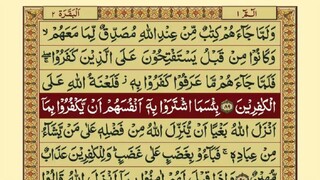 الٓمّٓ ١ الْبَقَرَة ٢
وَلَمَّا جَآءَهُمْ كِتٰبٌ مِّنْ عِنْدِ اللّٰهِ مُصَدِّقٌ لِّمَا مَعَهُمْ ۙ
وَكَانُوْا مِنْ قَبْلُ يَسْتَفْتِحُوْنَ عَلَى الَّذِيْنَ كَفَرُوْا ۚ
فَلَمَّا جَآءَهُمْ مَّا عَرَفُوْا كَفَرُوْا بِهٖ ؗ فَلَعْنَةُ اللّٰهِ عَلَى
الْكٰفِرِيْنَ ۝٨٩ بِئْسَمَا اشْتَرَوْا بِهٖۤ اَنْفُسَهُمْ اَنْ يَّكْفُرُوْا بِمَاۤ
اَنْزَلَ اللّٰهُ بَغْيًا اَنْ يُّنَزِّلَ اللّٰهُ مِنْ فَضْلِهٖ عَلٰى مَنْ يَّشَآءُ
مِنْ عِبَادِهٖ ۚ فَبَآءُوْ بِغَضَبٍ عَلٰى غَضَبٍ ؕ وَلِلْكٰفِرِيْنَ عَذَابٌ